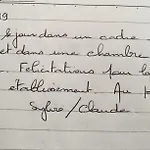 19
séjour dans un cadre
et dans une chambre
. Félicitations pour la
établissement. Au p
Sylvie / Claude